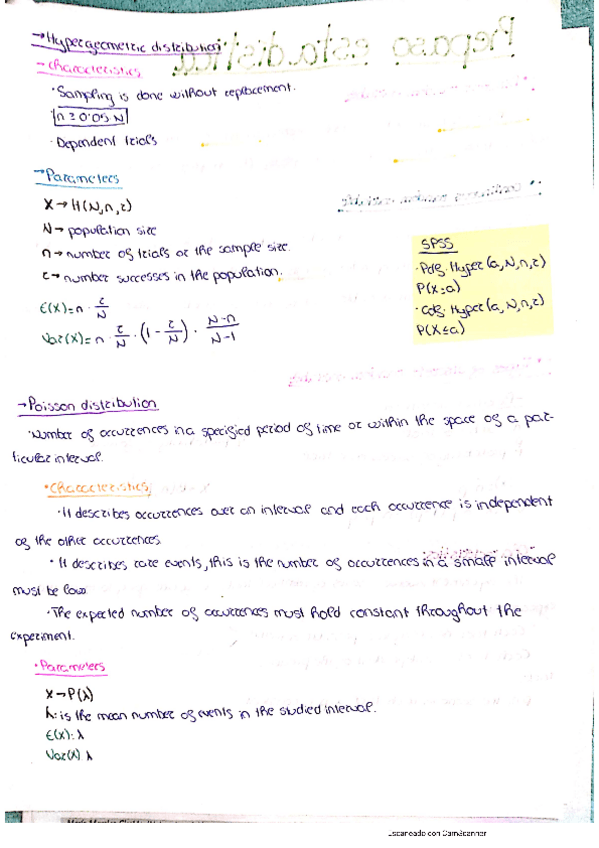 Repaso estadística.
→Hypergeometric distribution
-Characteristics
·Sampling is done without replacement.
n≥0'05 N
·Dependent trials
→Parameters
X→H(N,n,r)
N→population size
n→number of trials or the sample size.
r→number successes in the population.
E(X)=n · r/N
Var(X)=n · r/N · (1 - r/N) · N-n/N-1
SPSS
·Pdf. Hyper (a,N,n,r)
P(X=a)
·Cdf. Hyper (a,N,n,r)
P(X≤a)
→Poisson distribution
·Number of occurrences in a specified period of time or within the space of a par-
ticular interval.
·Characteristics
·It describes occurrences over an interval and each occurrence is independent
of the other occurrences.
·It describes rare events, this is the number of occurrences in a small interval
must be low
·The expected number of occurrences must hold constant throughout the
experiment.
·Parameters
X→P(λ)
λ: is the mean number of events in the studied interval.
E(X): λ
Var(X) λ
Escaneado con CamScanner